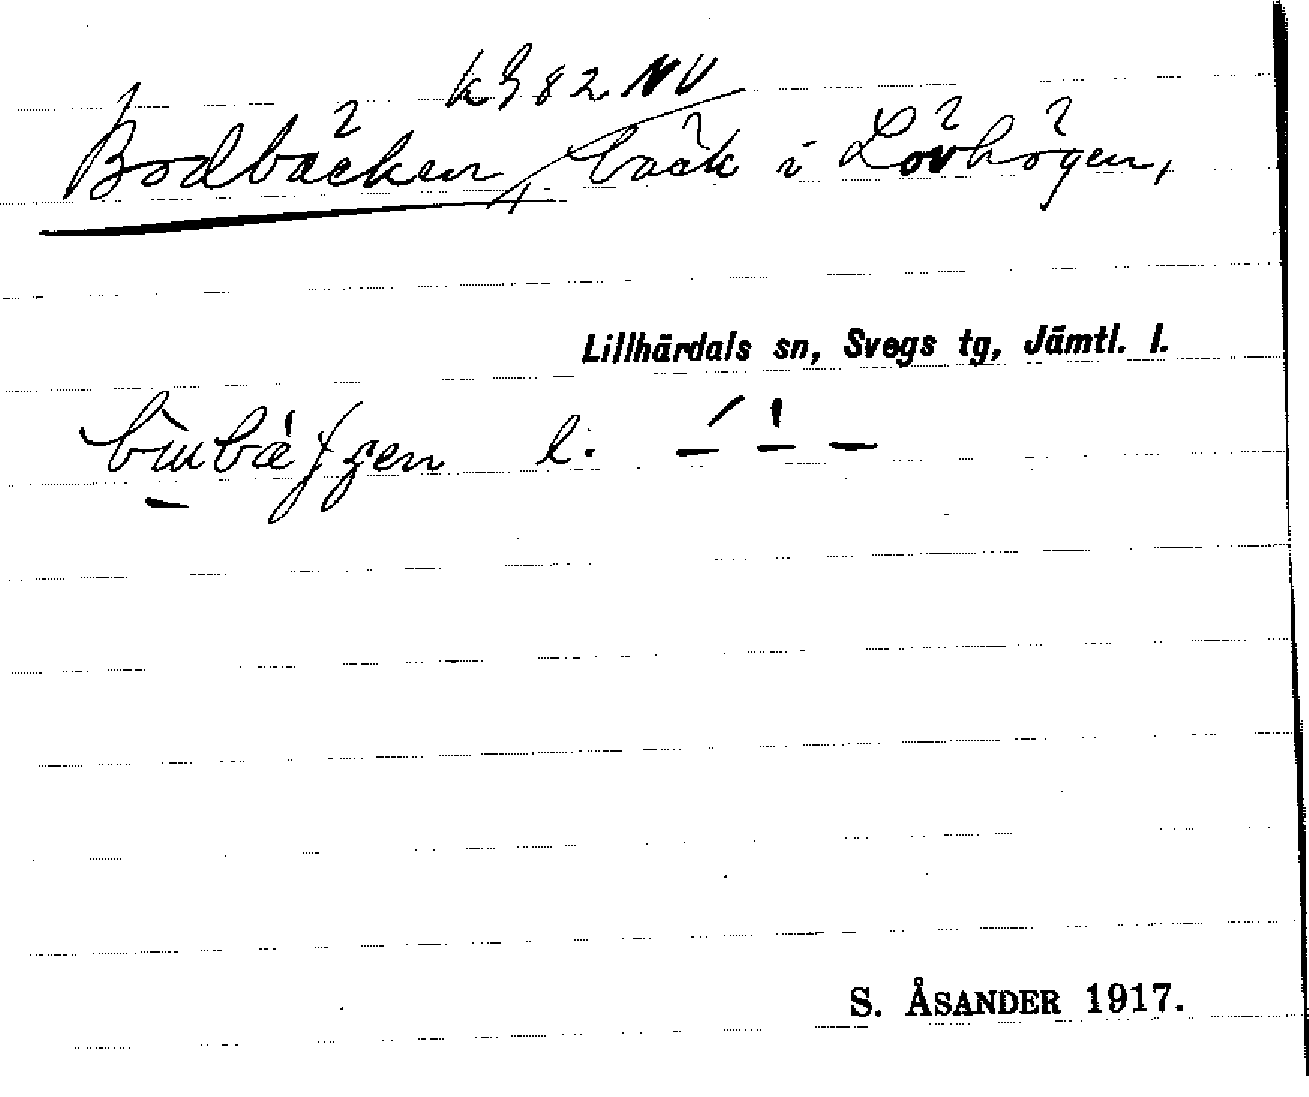 k 382 NV
Bodbäcken, bäck i Lövhögen,
Lillhärdals sn, Svegs tg, Jämtl. l.
l.
S. ÅSANDER 1917.